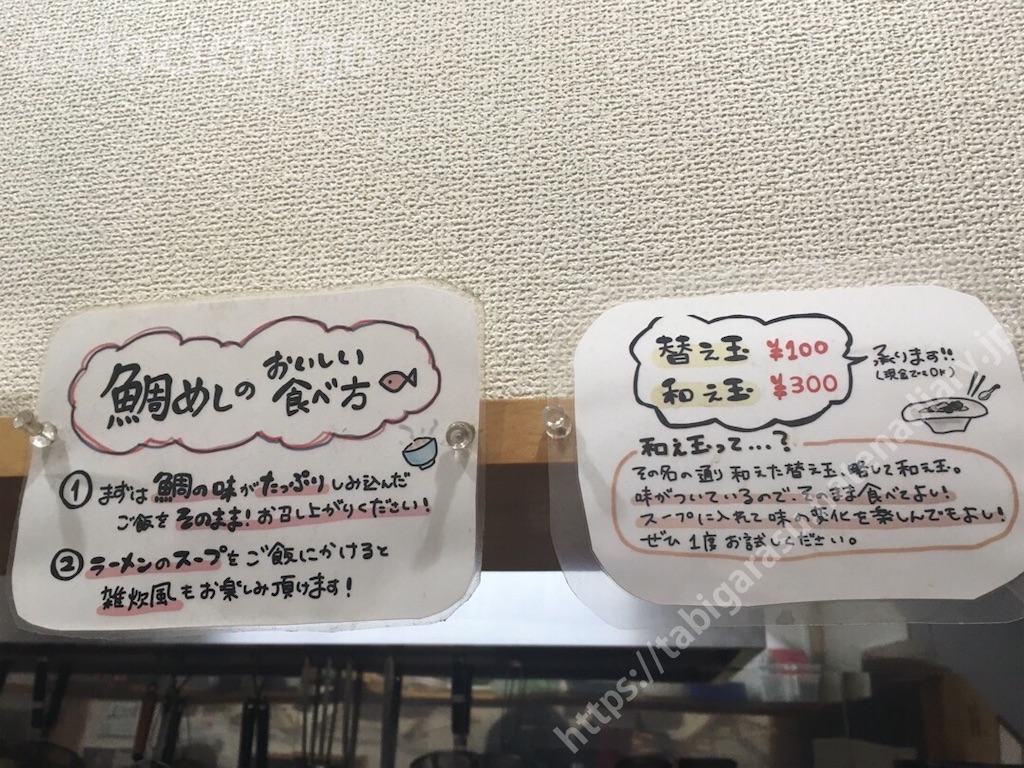 鯛めしの
おいしい
食べ方
① まずは鯛の味がたっぷりしみ込んだ
ご飯をそのまま!お召し上がりください!
② ラーメンのスープをご飯にかけると
雑炊風もお楽しみ頂けます!
替え玉 ¥100
和え玉 ¥300
承ります!!
(現金でもOK)
和え玉って...?
その名の通り和えた替え玉、略して和え玉。
味がついているので、そのまま食べてよし!
スープに入れて味の変化を楽しんでもよし!
ぜひ1度お試しください。
https://tabigarasu-itsumadiary.jp